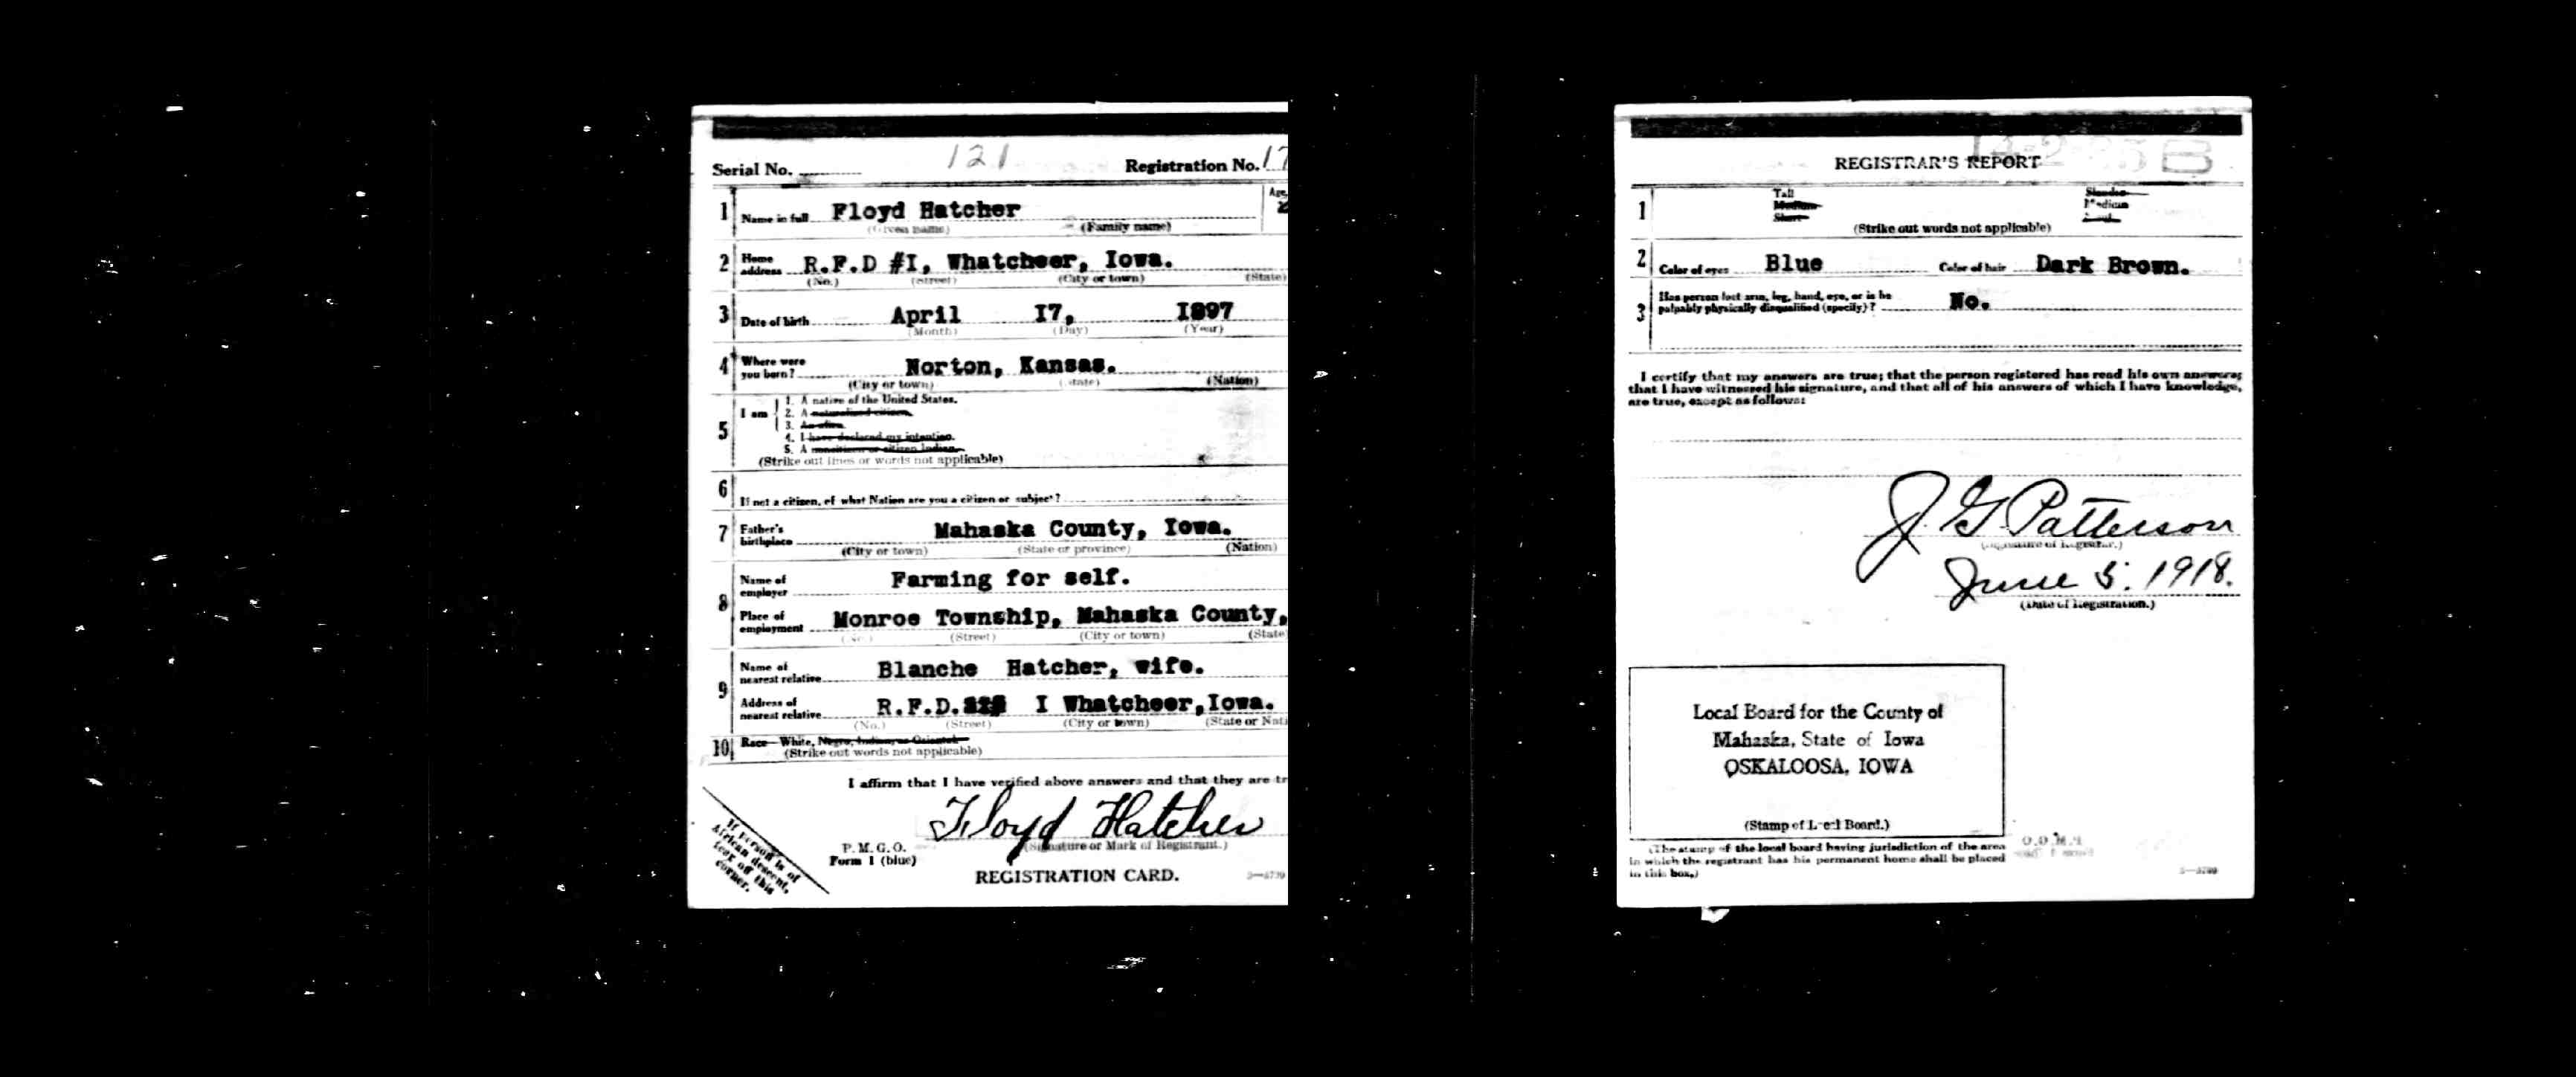 Serial No. 121 Registration No. 17
1 Name in full Floyd Hatcher Age
(Given name) (Family name)
2 Home address R.F.D #I, Whatcheer, Iowa.
(No.) (Street) (City or town) (State)
3 Date of birth April I7, I897
(Month) (Day) (Year)
4 Where were you born? Norton, Kansas.
(City or town) (State) (Nation)
5 I am
1. A native of the United States.
2. A naturalized citizen.
3. An alien.
4. I have declared my intention.
5. A noncitizen or citizen Indian.
(Strike out lines or words not applicable)
6 If not a citizen, of what Nation are you a citizen or subject?
7 Father's birthplace Mahaska County, Iowa.
(City or town) (State or province) (Nation)
8 Name of employer Farming for self.
Place of employment Monroe Township, Mahaska County,
(No.) (Street) (City or town) (State
9 Name of nearest relative Blanche Hatcher, wife.
Address of nearest relative R.F.D. I Whatcheer, Iowa.
(No.) (Street) (City or town) (State or Nati
10 Race—White, Negro, Indian, or Oriental
(Strike out words not applicable)
I affirm that I have verified above answers and that they are tr
Floyd Hatcher
(Signature or Mark of Registrant.)
P. M. G. O.
Form 1 (blue)
REGISTRATION CARD.
If person is of
African descent,
tear off this
corner.
REGISTRAR'S REPORT
1 Tall Slender
Medium Medium
Short Stout
(Strike out words not applicable)
2 Color of eyes Blue Color of hair Dark Brown.
3 Has person lost arm, leg, hand, eye, or is he
palpably physically disqualified (specify)? No.
I certify that my answers are true; that the person registered has read his own answers;
that I have witnessed his signature, and that all of his answers of which I have knowledge,
are true, except as follows:
J. G. Patterson
(Signature of Registrar.)
June 5. 1918.
(Date of Registration.)
Local Board for the County of
Mahaska, State of Iowa
OSKALOOSA, IOWA
(Stamp of Local Board.)
(The stamp of the local board having jurisdiction of the area
in which the registrant has his permanent home shall be placed
in this box.)